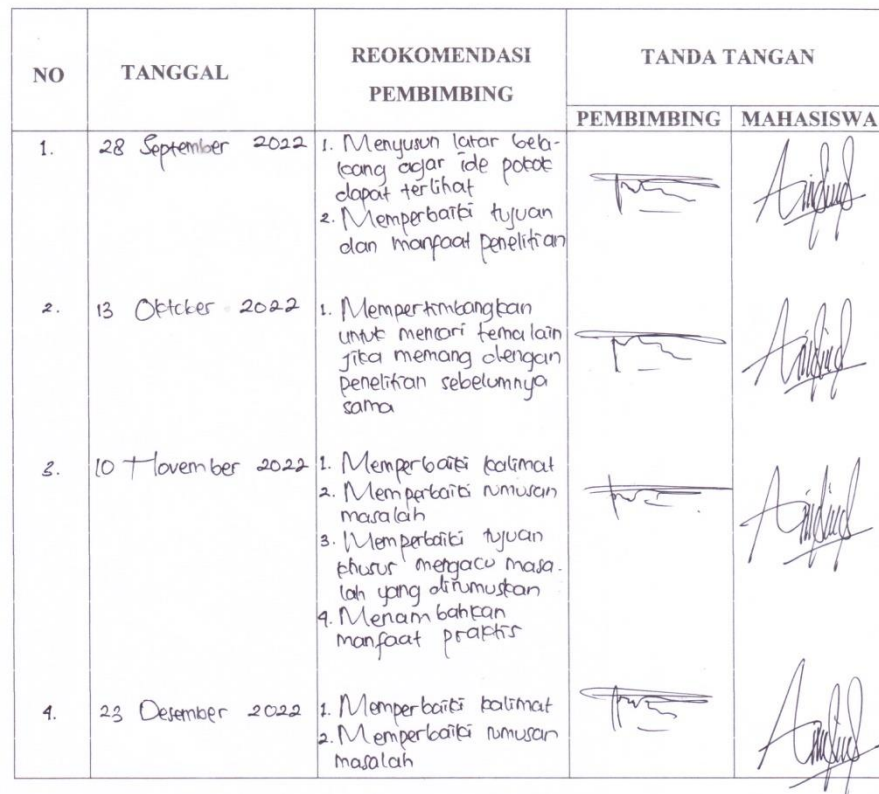 NO TANGGAL REOKOMENDASI PEMBIMBING TANDA TANGAN
PEMBIMBING MAHASISWA
1. 28 September 2022 1. Menyusun latar bela-
kang agar ide pokok
dapat terlihat
2. Memperbaiki tujuan
dan manfaat penelitian
2. 13 Oktober 2022 1. Mempertimbangkan
untuk mencari tema lain
jika memang dengan
penelitian sebelumnya
sama
3. 10 November 2022 1. Memperbaiki kalimat
2. Memperbaiki rumusan
masalah
3. Memperbaiki tujuan
khusus mengacu masa-
lah yang dirumuskan
4. Menambahkan
manfaat praktis
4. 23 Desember 2022 1. Memperbaiki kalimat
2. Memperbaiki rumusan
masalah